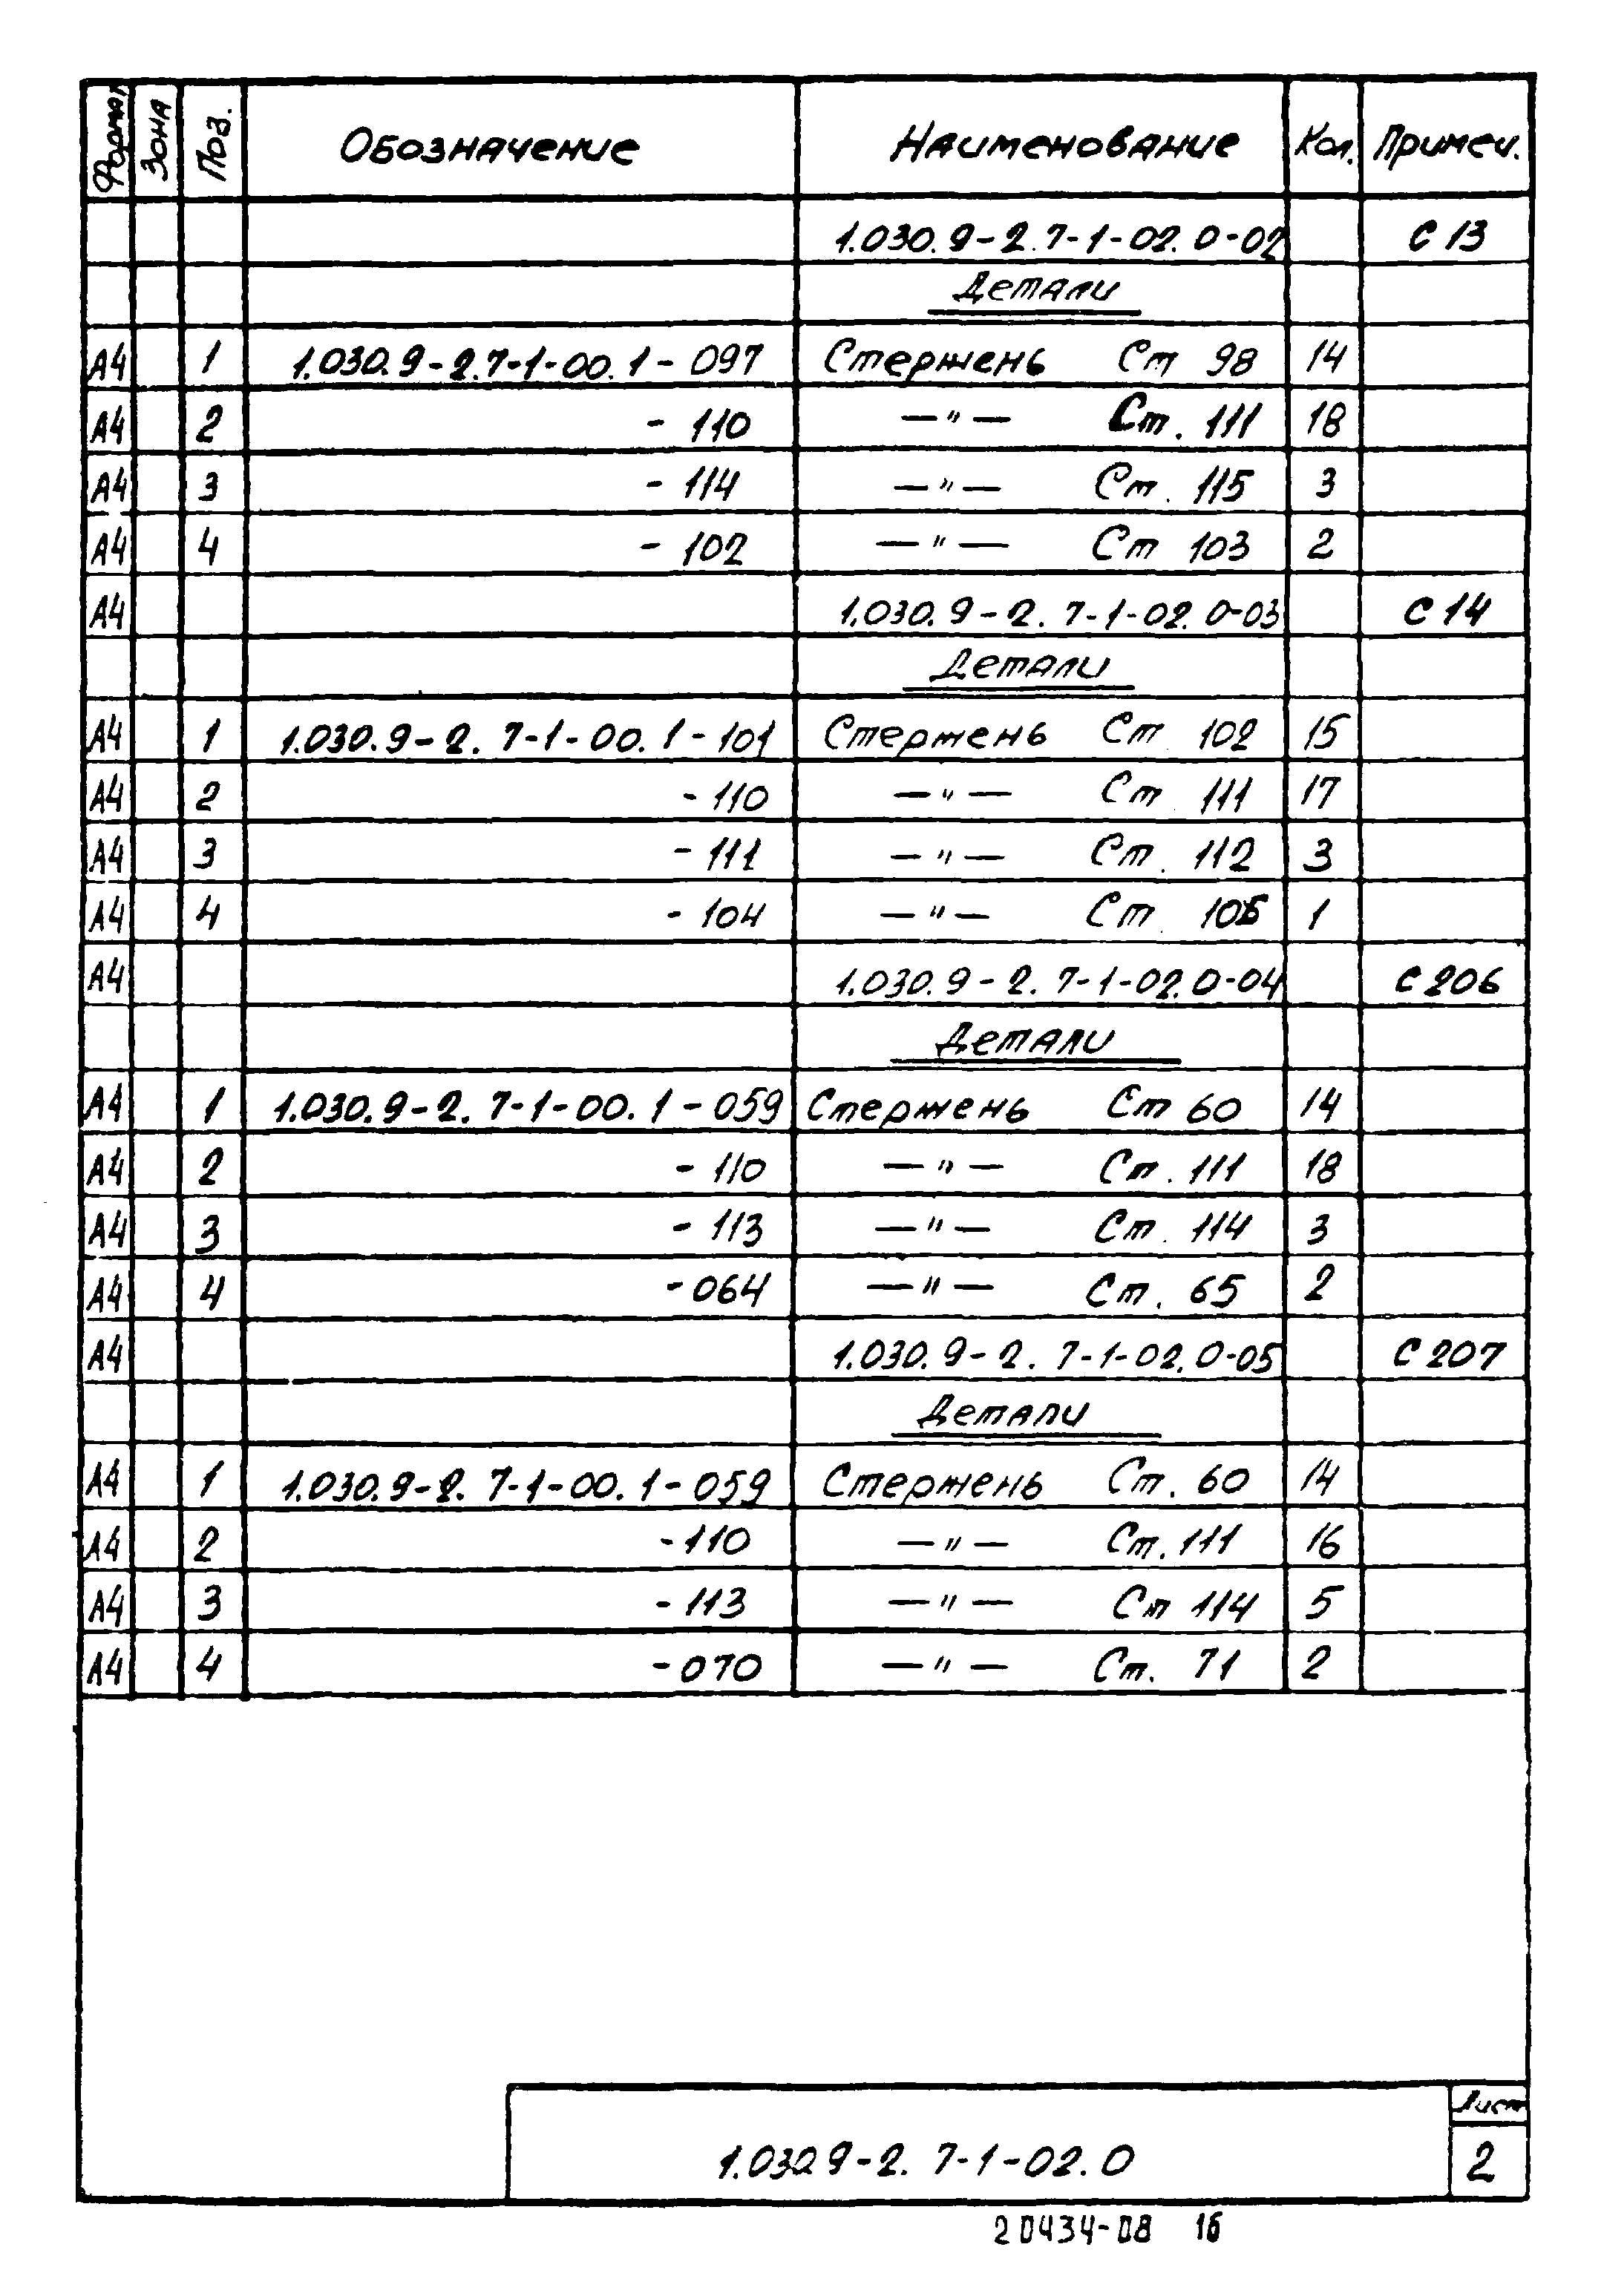 Формат Зона Поз. Обозначение Наименование Кол. Примеч.
1.030.9-2.7-1-02.0-02 С 13
Детали
А4 1 1.030.9-2.7-1-00.1-097 Стержень Ст 98 14
А4 2 - 110 — " — Ст. 111 18
А4 3 - 114 — " — Ст. 115 3
А4 4 - 102 — " — Ст 103 2
А4 1.030.9-2.7-1-02.0-03 С 14
Детали
А4 1 1.030.9-2.7-1-00.1-101 Стержень Ст 102 15
А4 2 - 110 — " — Ст 111 17
А4 3 - 111 — " — Ст. 112 3
А4 4 - 104 — " — Ст. 105 1
А4 1.030.9-2.7-1-02.0-04 С 206
Детали
А4 1 1.030.9-2.7-1-00.1-059 Стержень Ст 60 14
А4 2 - 110 — " — Ст. 111 18
А4 3 - 113 — " — Ст. 114 3
А4 4 - 064 — " — Ст. 65 2
А4 1.030.9-2.7-1-02.0-05 С 207
Детали
А4 1 1.030.9-2.7-1-00.1-059 Стержень Ст. 60 14
А4 2 - 110 — " — Ст. 111 16
А4 3 - 113 — " — Ст 114 5
А4 4 - 070 — " — Ст. 71 2
Лист
1.030.9-2.7-1-02.0 2
20434-08 16